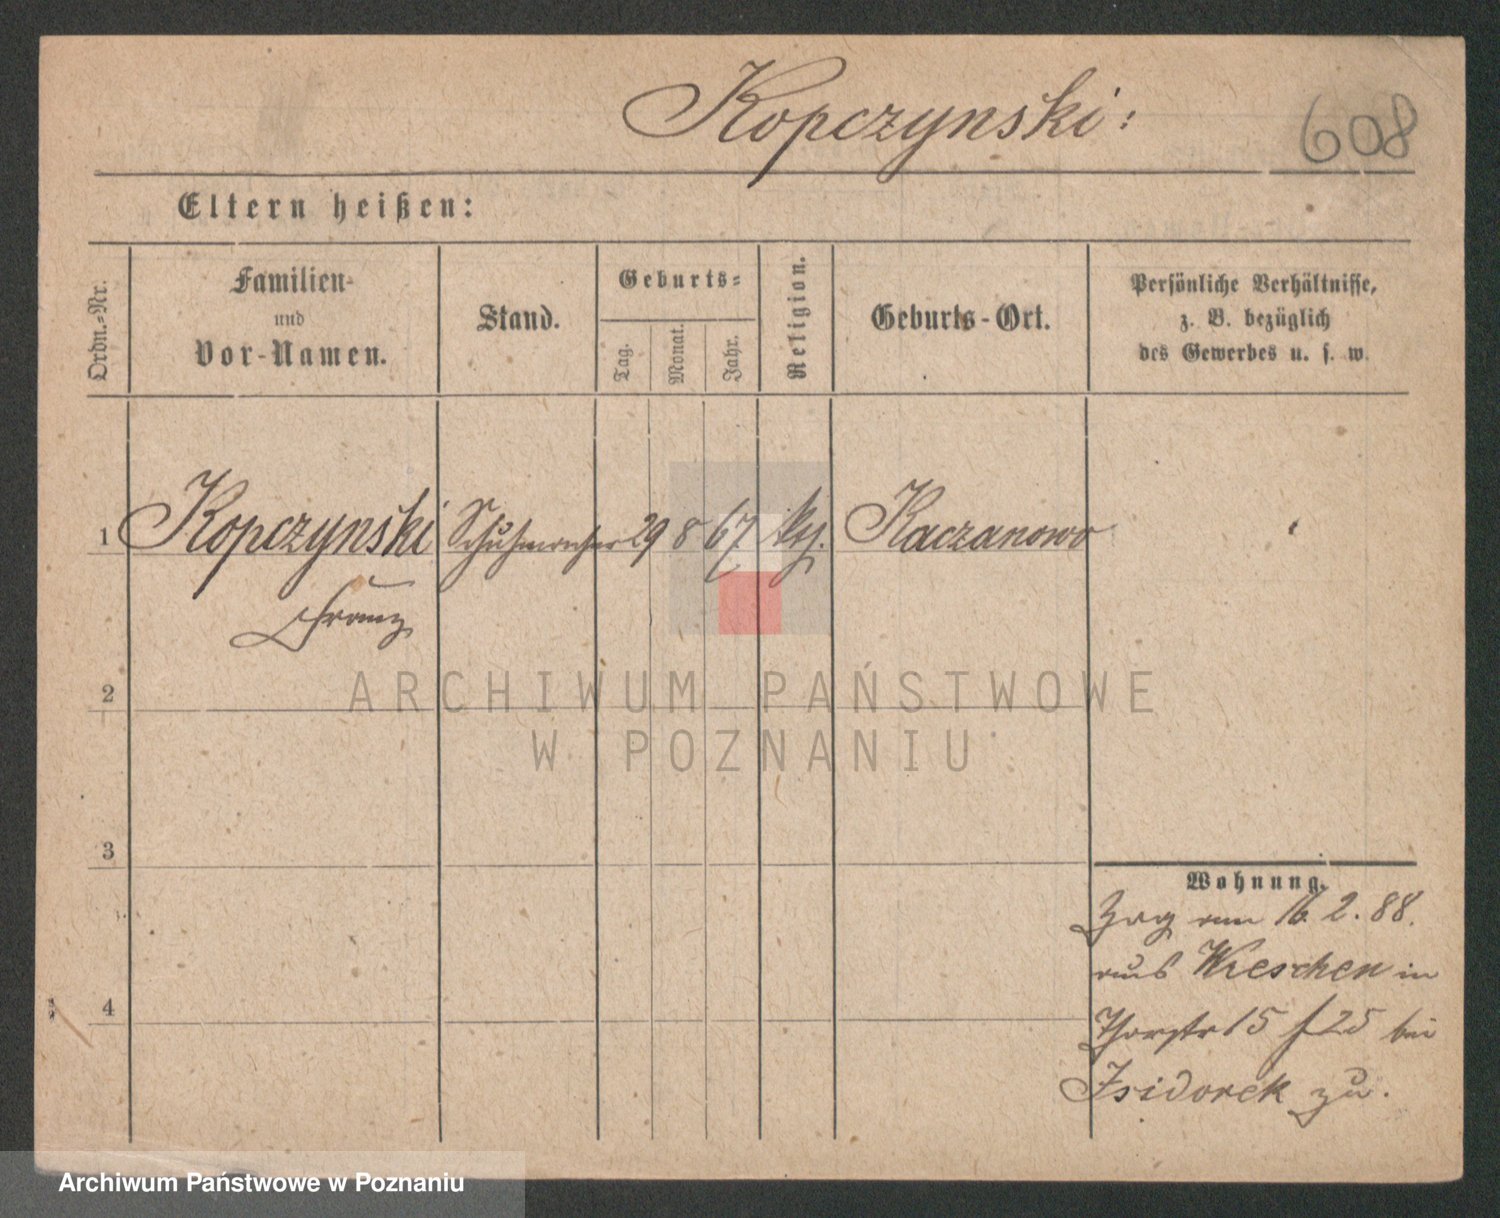 Kopczynski:
608
Eltern heißen:
Ordn.-Nr.
Familien-
und
Vor-Namen.
Stand.
Geburts-
Tag.
Monat.
Jahr.
Religion.
Geburts-Ort.
Persönliche Verhältnisse,
z. B. bezüglich
des Gewerbes u. s. w.
1 Kopczynski Schuhmacher 29 8 67 kth. Kaczanowo
Franz
2
ARCHIWUM PAŃSTWOWE
W POZNANIU
3
Wohnung.
Zog am 16. 2. 88.
aus Wreschen in
4
Thorstr 15 f 25 bei
Isidorek zu.
Archiwum Państwowe w Poznaniu